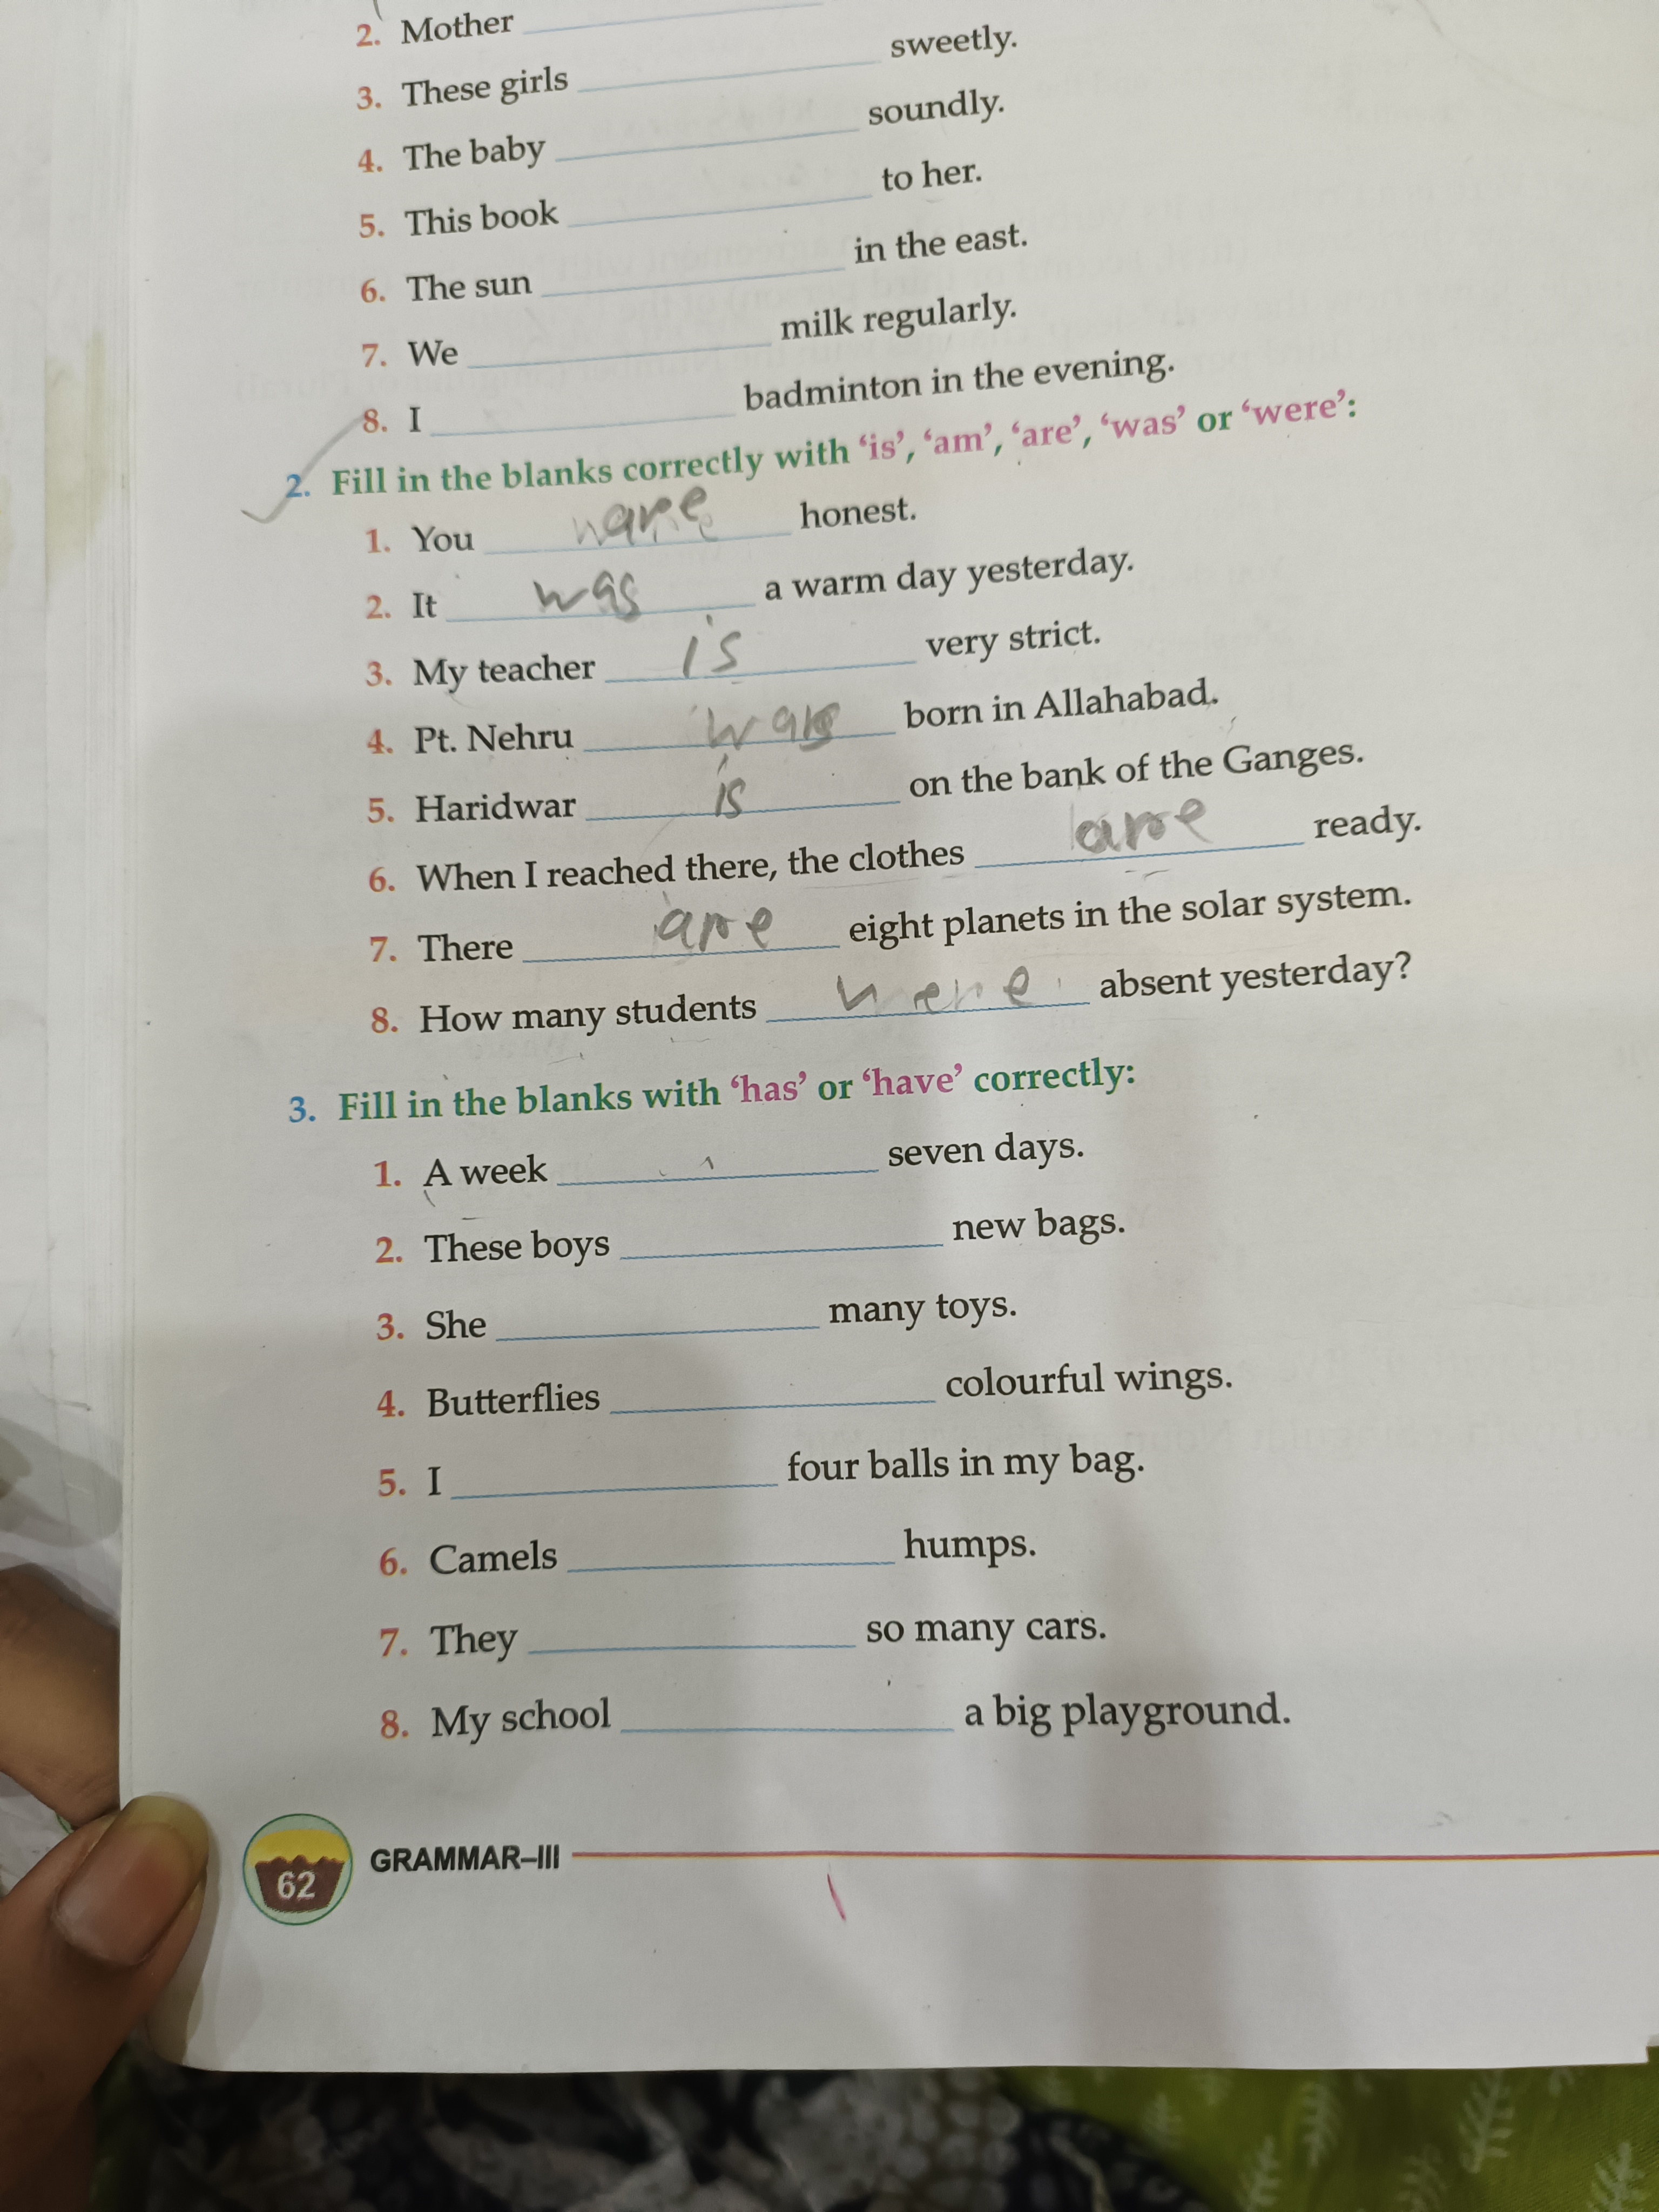 2. Mother ____________
3. These girls ____________ sweetly.
4. The baby ____________ soundly.
5. This book ____________ to her.
6. The sun ____________ in the east.
7. We ____________ milk regularly.
8. I ____________ badminton in the evening.
2. Fill in the blanks correctly with ‘is’, ‘am’, ‘are’, ‘was’ or ‘were’:
1. You are honest.
2. It was a warm day yesterday.
3. My teacher is very strict.
4. Pt. Nehru was born in Allahabad.
5. Haridwar is on the bank of the Ganges.
6. When I reached there, the clothes are ready.
7. There are eight planets in the solar system.
8. How many students were absent yesterday?
3. Fill in the blanks with ‘has’ or ‘have’ correctly:
1. A week ____________ seven days.
2. These boys ____________ new bags.
3. She ____________ many toys.
4. Butterflies ____________ colourful wings.
5. I ____________ four balls in my bag.
6. Camels ____________ humps.
7. They ____________ so many cars.
8. My school ____________ a big playground.
62 GRAMMAR–III